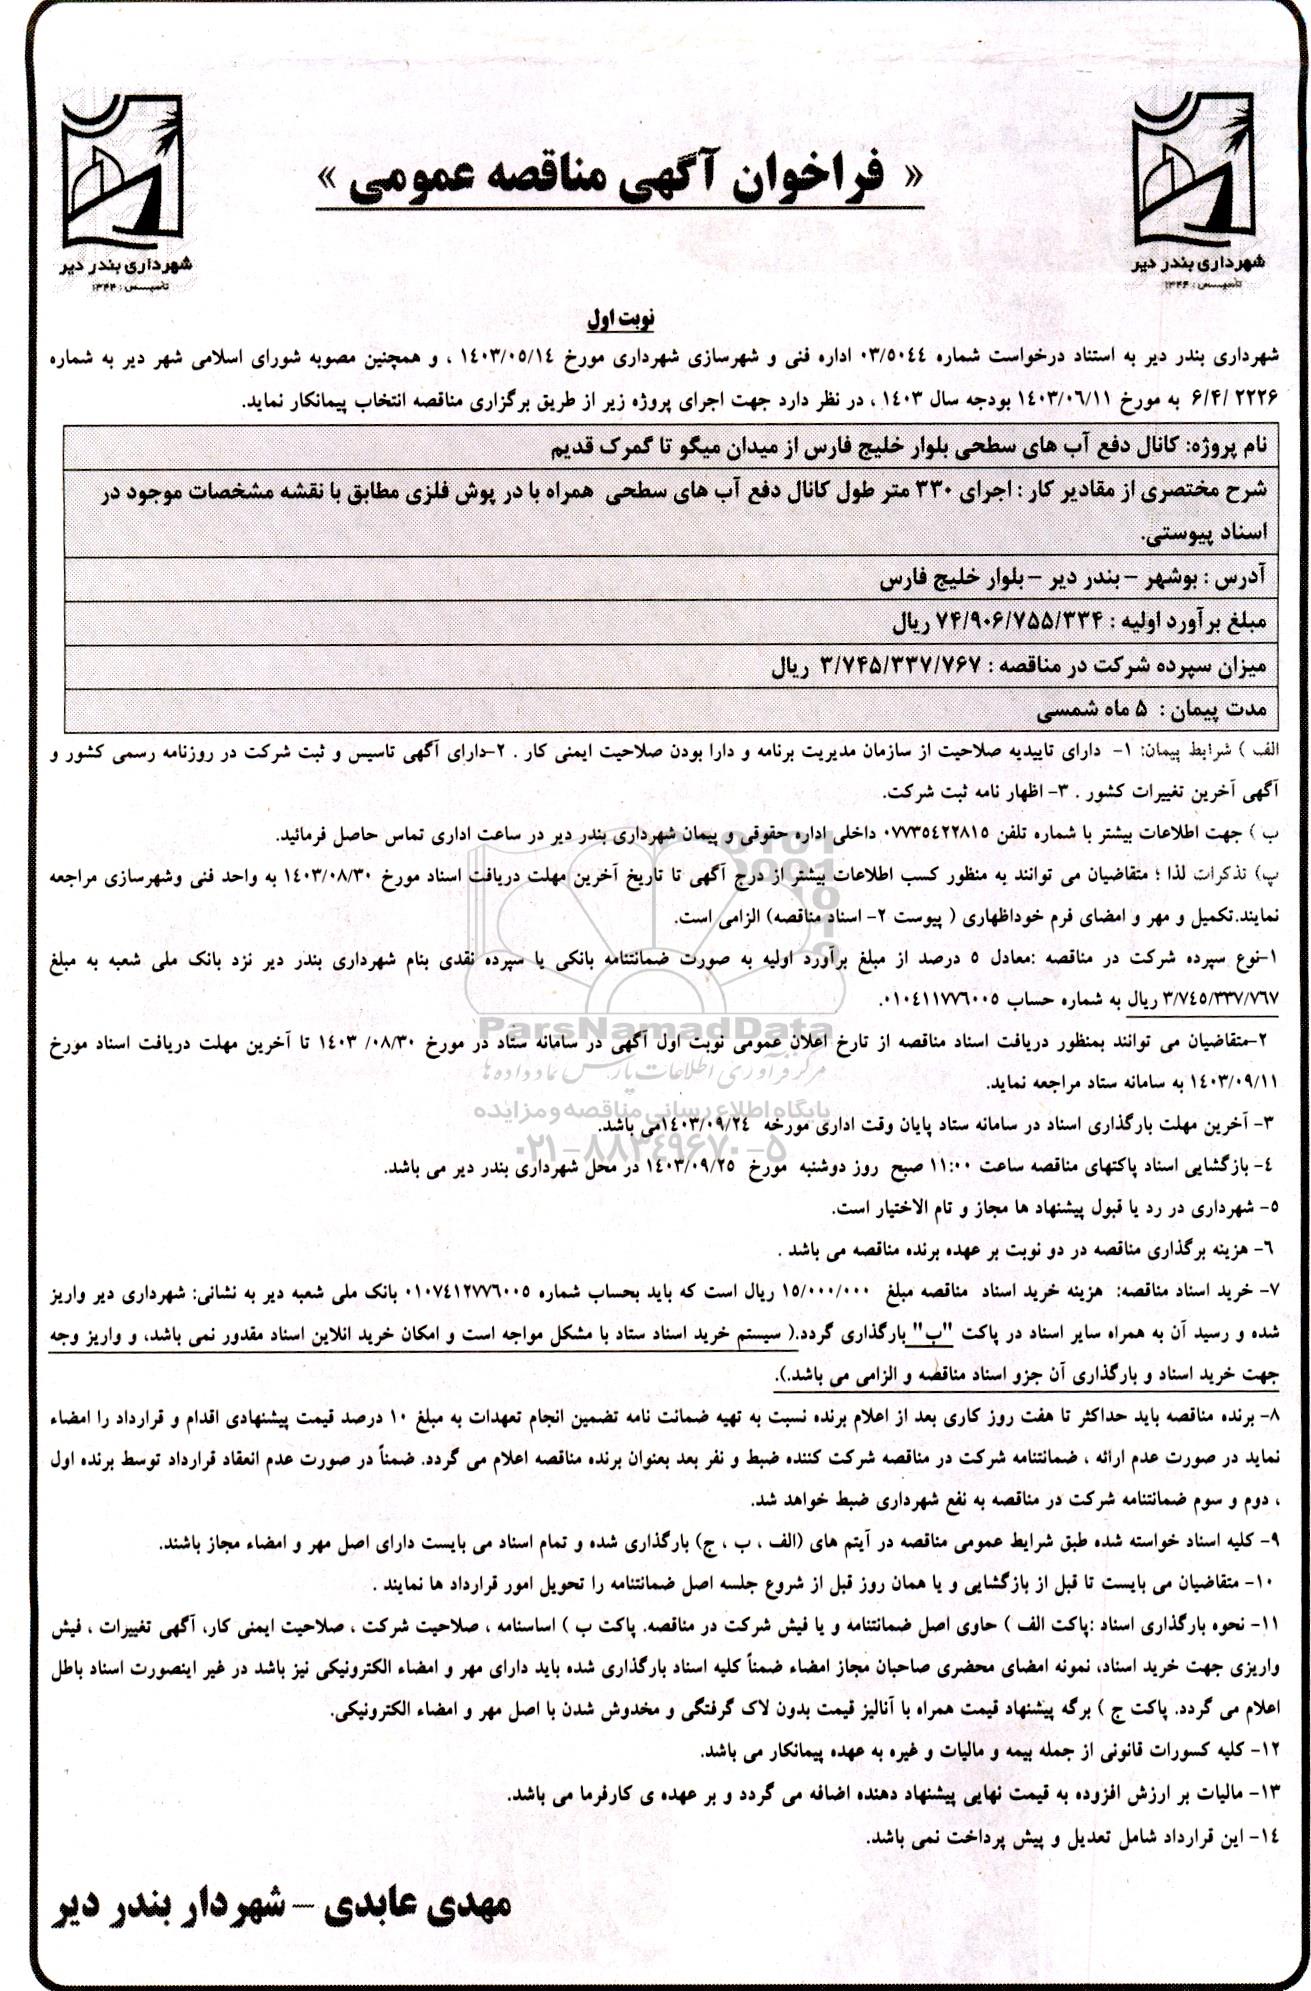 « فراخوان آگهی مناقصه عمومی »
شهرداری بندر دیر
تاسیس : ۱۳۴۴
شهرداری بندر دیر
نوبت اول
شهرداری بندر دیر به استناد درخواست شماره ۰۳/۵۰۴۴ اداره فنی و شهرسازی شهرداری مورخ ۱۴۰۳/۰۵/۱۴ ، و همچنین مصوبه شورای اسلامی شهر دیر به شماره
۶/۴/ ۲۲۲۶ به مورخ ۱۴۰۳/۰۶/۱۱ بودجه سال ۱۴۰۳ ، در نظر دارد جهت اجرای پروژه زیر از طریق برگزاری مناقصه انتخاب پیمانکار نماید.
نام پروژه: کانال دفع آب های سطحی بلوار خلیج فارس از میدان میگو تا گمرک قدیم
شرح مختصری از مقادیر کار : اجرای ۳۳۰ متر طول کانال دفع آب های سطحی همراه با در پوش فلزی مطابق با نقشه مشخصات موجود در
اسناد پیوستی.
آدرس : بوشهر – بندر دیر – بلوار خلیج فارس
مبلغ برآورد اولیه : ۷۴/۹۰۶/۷۵۵/۳۳۴ ریال
میزان سپرده شرکت در مناقصه : ۳/۷۴۵/۳۳۷/۷۶۷ ریال
مدت پیمان : ۵ ماه شمسی
الف ) شرایط پیمان: ۱- دارای تاییدیه صلاحیت از سازمان مدیریت برنامه و دارا بودن صلاحیت ایمنی کار . ۲-دارای آگهی تاسیس و ثبت شرکت در روزنامه رسمی کشور و
آگهی آخرین تغییرات کشور . ۳- اظهار نامه ثبت شرکت.
ب ) جهت اطلاعات بیشتر با شماره تلفن ۰۷۷۳۵۴۲۲۸۱۵ داخلی اداره حقوقی و پیمان شهرداری بندر دیر در ساعت اداری تماس حاصل فرمائید.
پ) تذکرات لذا ؛ متقاضیان می توانند به منظور کسب اطلاعات بیشتر از درج آگهی تا تاریخ آخرین مهلت دریافت اسناد مورخ ۱۴۰۳/۰۸/۳۰ به واحد فنی وشهرسازی مراجعه
نمایند.تکمیل و مهر و امضای فرم خوداظهاری ( پیوست ۲- اسناد مناقصه) الزامی است.
۱-نوع سپرده شرکت در مناقصه :معادل ۵ درصد از مبلغ برآورد اولیه به صورت ضمانتنامه بانکی یا سپرده نقدی بنام شهرداری بندر دیر نزد بانک ملی شعبه به مبلغ
۳/۷۴۵/۳۳۷/۷۶۷ ریال به شماره حساب ۰۱۰۴۱۱۷۷۶۰۰۵.
ParsNamadData
۲-متقاضیان می توانند بمنظور دریافت اسناد مناقصه از تارخ اعلان عمومی نوبت اول آگهی در سامانه ستاد در مورخ ۰۸/۳۰/ ۱۴۰۳ تا آخرین مهلت دریافت اسناد مورخ
مرکز فرآوری اطلاعات پارس نماد داده ها
۱۴۰۳/۰۹/۱۱ به سامانه ستاد مراجعه نماید.
پایگاه اطلاع رسانی مناقصه و مزایده
۳- آخرین مهلت بارگذاری اسناد در سامانه ستاد پایان وقت اداری مورخه ۱۴۰۳/۰۹/۲۴می باشد.
۰۲۱-۸۸۳۴۹۶۷۰-۵
۴- بازگشایی اسناد پاکتهای مناقصه ساعت ۱۱:۰۰ صبح روز دوشنبه مورخ ۱۴۰۳/۰۹/۲۵ در محل شهرداری بندر دیر می باشد.
۵- شهرداری در رد یا قبول پیشنهاد ها مجاز و تام الاختیار است.
۶- هزینه برگذاری مناقصه در دو نوبت بر عهده برنده مناقصه می باشد .
۷- خرید اسناد مناقصه: هزینه خرید اسناد مناقصه مبلغ ۱۵/۰۰۰/۰۰۰ ریال است که باید بحساب شماره ۰۱۰۷۴۱۲۷۷۶۰۰۵ بانک ملی شعبه دیر به نشانی: شهرداری دیر واریز
شده و رسید آن به همراه سایر اسناد در پاکت "ب" بارگذاری گردد.( سیستم خرید اسناد ستاد با مشکل مواجه است و امکان خرید انلاین اسناد مقدور نمی باشد، و واریز وجه
جهت خرید اسناد و بارگذاری آن جزو اسناد مناقصه و الزامی می باشد.).
۸- برنده مناقصه باید حداکثر تا هفت روز کاری بعد از اعلام برنده نسبت به تهیه ضمانت نامه تضمین انجام تعهدات به مبلغ ۱۰ درصد قیمت پیشنهادی اقدام و قرارداد را امضاء
نماید در صورت عدم ارائه ، ضمانتنامه شرکت در مناقصه شرکت کننده ضبط و نفر بعد بعنوان برنده مناقصه اعلام می گردد. ضمناً در صورت عدم انعقاد قرارداد توسط برنده اول
، دوم و سوم ضمانتنامه شرکت در مناقصه به نفع شهرداری ضبط خواهد شد.
۹- کلیه اسناد خواسته شده طبق شرایط عمومی مناقصه در آیتم های (الف ، ب ، ج) بارگذاری شده و تمام اسناد می بایست دارای اصل مهر و امضاء مجاز باشند.
۱۰- متقاضیان می بایست تا قبل از بازگشایی و یا همان روز قبل از شروع جلسه اصل ضمانتنامه را تحویل امور قرارداد ها نمایند .
۱۱- نحوه بارگذاری اسناد :پاکت الف ) حاوی اصل ضمانتنامه و یا فیش شرکت در مناقصه. پاکت ب ) اساسنامه ، صلاحیت شرکت ، صلاحیت ایمنی کار، آگهی تغییرات ، فیش
واریزی جهت خرید اسناد، نمونه امضای محضری صاحبان مجاز امضاء ضمناً کلیه اسناد بارگذاری شده باید دارای مهر و امضاء الکترونیکی نیز باشد در غیر اینصورت اسناد باطل
اعلام می گردد. پاکت ج ) برگه پیشنهاد قیمت همراه با آنالیز قیمت بدون لاک گرفتگی و مخدوش شدن با اصل مهر و امضاء الکترونیکی.
۱۲- کلیه کسورات قانونی از جمله بیمه و مالیات و غیره به عهده پیمانکار می باشد.
۱۳- مالیات بر ارزش افزوده به قیمت نهایی پیشنهاد دهنده اضافه می گردد و بر عهده ی کارفرما می باشد.
۱۴- این قرارداد شامل تعدیل و پیش پرداخت نمی باشد.
مهدی عابدی – شهردار بندر دیر